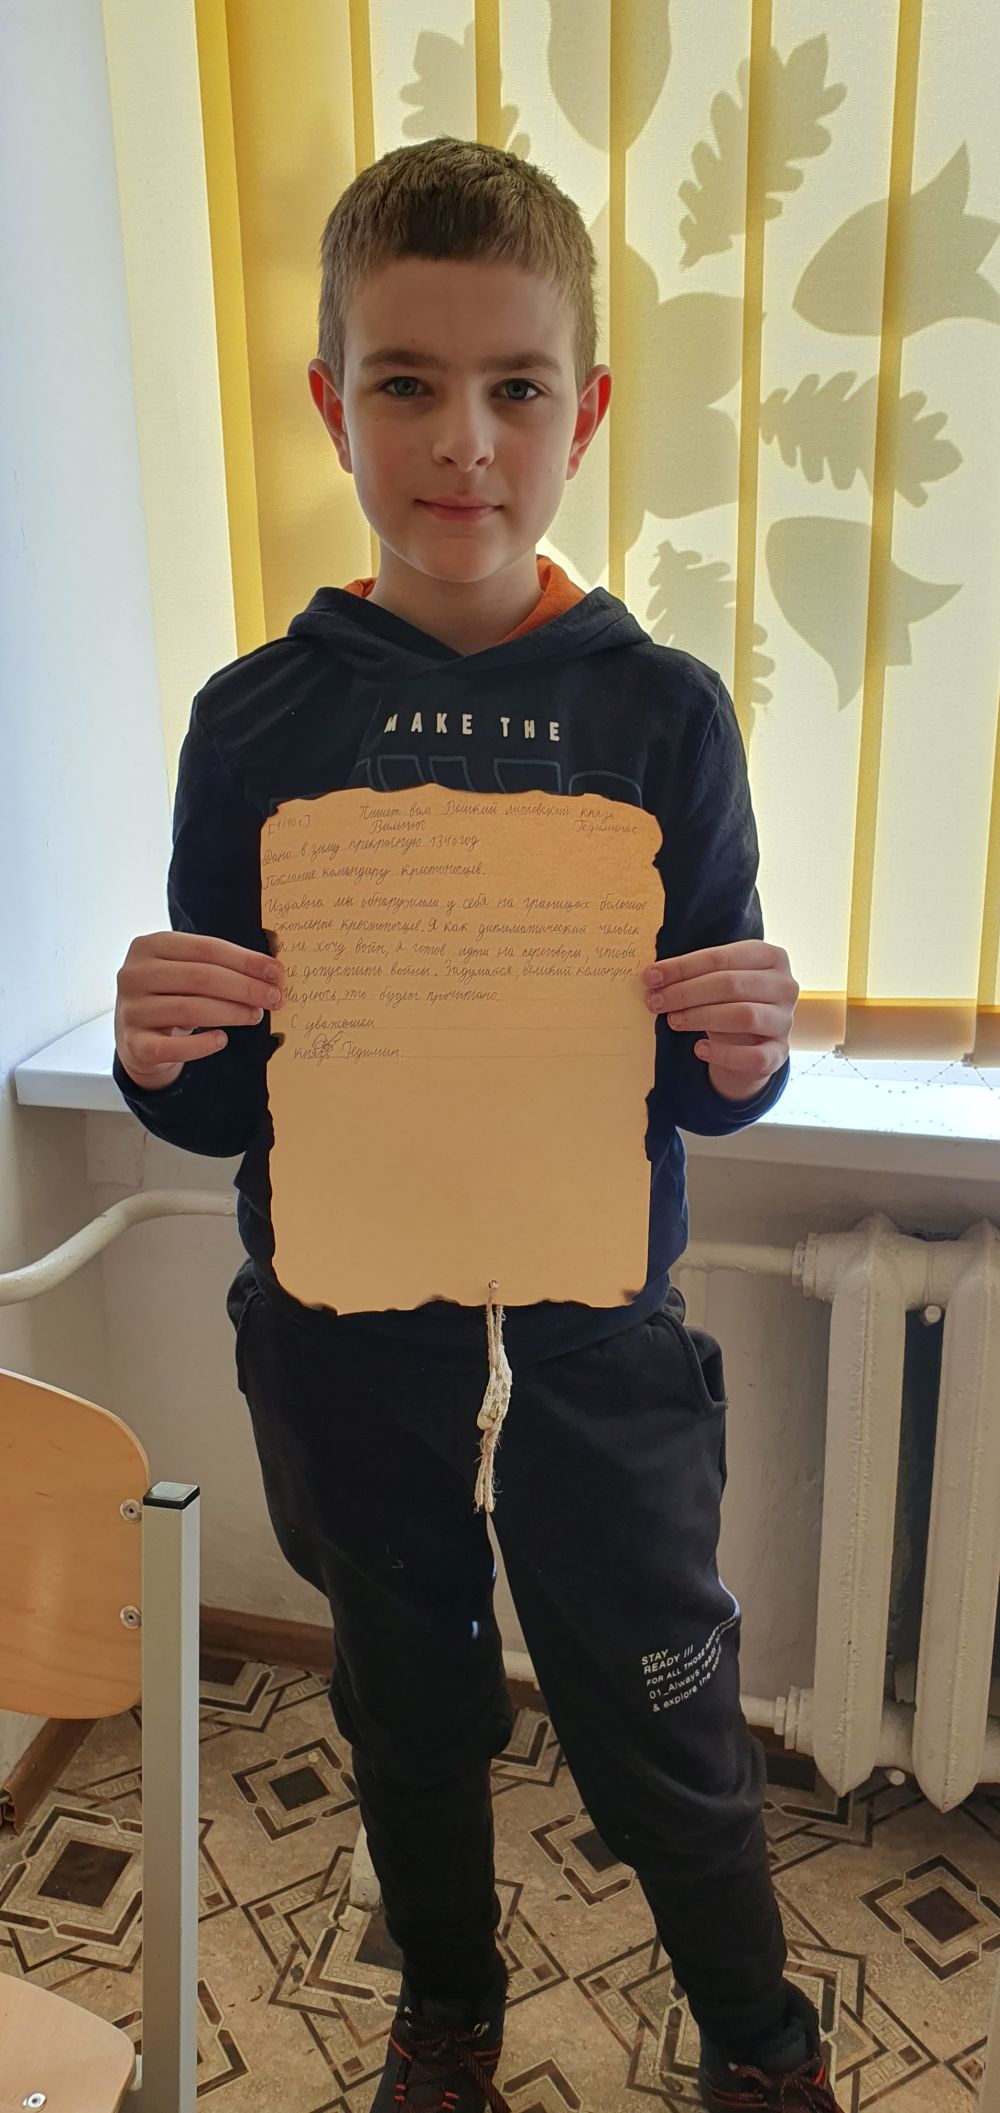 MAKE THE
Пишет вам Великий литовский князь
[1340г.] Вильнюс Гедиминас
Дано в зиму прекрасную 1340 год
Послание командиру крестоносцев.
Издавна мы обнаружили у себя на границах большое
скопление крестоносцев. Я как дипломатический человек
я не хочу войн, я готов идти на переговоры, чтобы
не допустить войны. Задумайся, великий командир!
Надеюсь, это будет прочитано.
С уважением
князь Гедимин.
STAY
READY ///
FOR ALL THOSE
01_Always ready to
& explore the